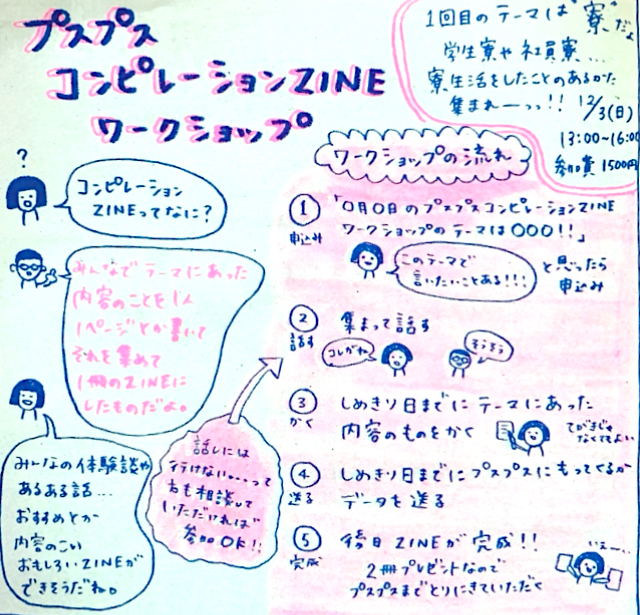 プスプス
コンピレーションZINE
ワークショップ
1回目のテーマは"寮"だよ
学生寮や社員寮...
寮生活をしたことのあるかた
集まれーーっっ!! 12/3(日)
13:00~16:00
参加費 1500円
?
コンピレーション
ZINEってなに?
みんなでテーマにあった
内容のことを1人
1ページとか書いて
それを集めて
1冊のZINEに
したものだよ。
みんなの体験談や
あるある話...
おすすめとか
内容のこい
おもしろいZINEが
できそうだね。
話しには
行けない...って
かたも相談して
いただければ
参加OK!!
ワークショップの流れ
① 申込み
「〇月〇日のプスプスコンピレーションZINE
ワークショップのテーマは〇〇〇!!」
このテーマで
言いたいことある!!!
と思ったら
申込み
② 話す
集まって話す
コレがね
そうそう
③ かく
しめきり日までにテーマにあった
内容のものをかく
てがきじゃ
なくてよい
④ 送る
しめきり日までにプスプスにもってくるか
データを送る
⑤ 完成
後日ZINEが完成!!
2冊プレゼントなので
プスプスまでとりにきていただく
いえーい